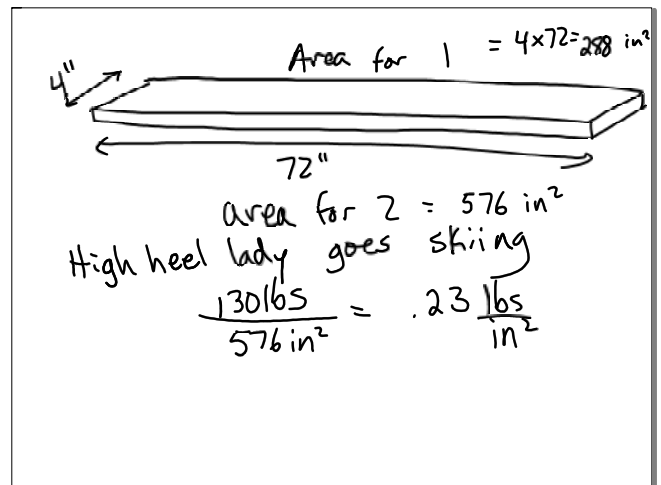 Area for 1 = 4×72=288 in²
4"
72"
area for 2 = 576 in²
High heel lady goes skiing
130lbs
576 in² = .23 lbs
in²